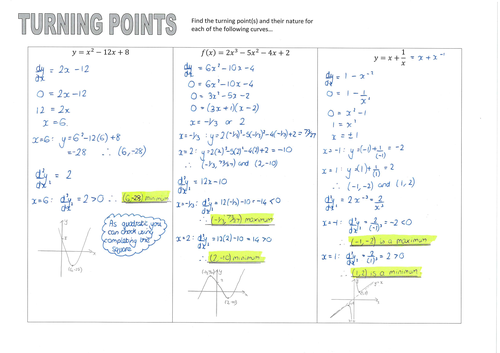 TURNING POINTS
Find the turning point(s) and their nature for
each of the following curves...
y = x² − 12x + 8
dy/dx = 2x − 12
0 = 2x − 12
12 = 2x
x = 6
x = 6: y = 6² − 12(6) + 8
= −28 ∴ (6, −28)
d²y/dx² = 2
x = 6: d²y/dx² = 2 > 0 ∴ (6, −28) minimum
As quadratic you
can check using
completing the
square
y
x
(6, −28)
f(x) = 2x³ − 5x² − 4x + 2
dy/dx = 6x² − 10x − 4
0 = 6x² − 10x − 4
0 = 3x² − 5x − 2
0 = (3x + 1)(x − 2)
x = −1/3 or 2
x = −1/3: y = 2(−1/3)³ − 5(−1/3)² − 4(−1/3) + 2 = 73/27
x = 2: y = 2(2)³ − 5(2)² − 4(2) + 2 = −10
∴ (−1/3, 73/27) and (2, −10)
d²y/dx² = 12x − 10
x = −1/3: d²y/dx² = 12(−1/3) − 10 = −14 < 0
∴ (−1/3, 73/27) maximum
x = 2: d²y/dx² = 12(2) − 10 = 14 > 0
∴ (2, −10) minimum
(2, −10)
y = x + 1/x = x + x⁻¹
dy/dx = 1 − x⁻²
0 = 1 − 1/x²
0 = x² − 1
1 = x²
x = ± 1
x = −1: y = (−1) + 1/(−1) = −2
x = 1: y = (1) + 1/(1) = 2
∴ (−1, −2) and (1, 2)
d²y/dx² = 2x⁻³ = 2/x³
x = −1: d²y/dx² = 2/(−1)³ = −2 < 0
∴ (−1, −2) is a maximum
x = 1: d²y/dx² = 2/(1)³ = 2 > 0
∴ (1, 2) is a minimum
y = x